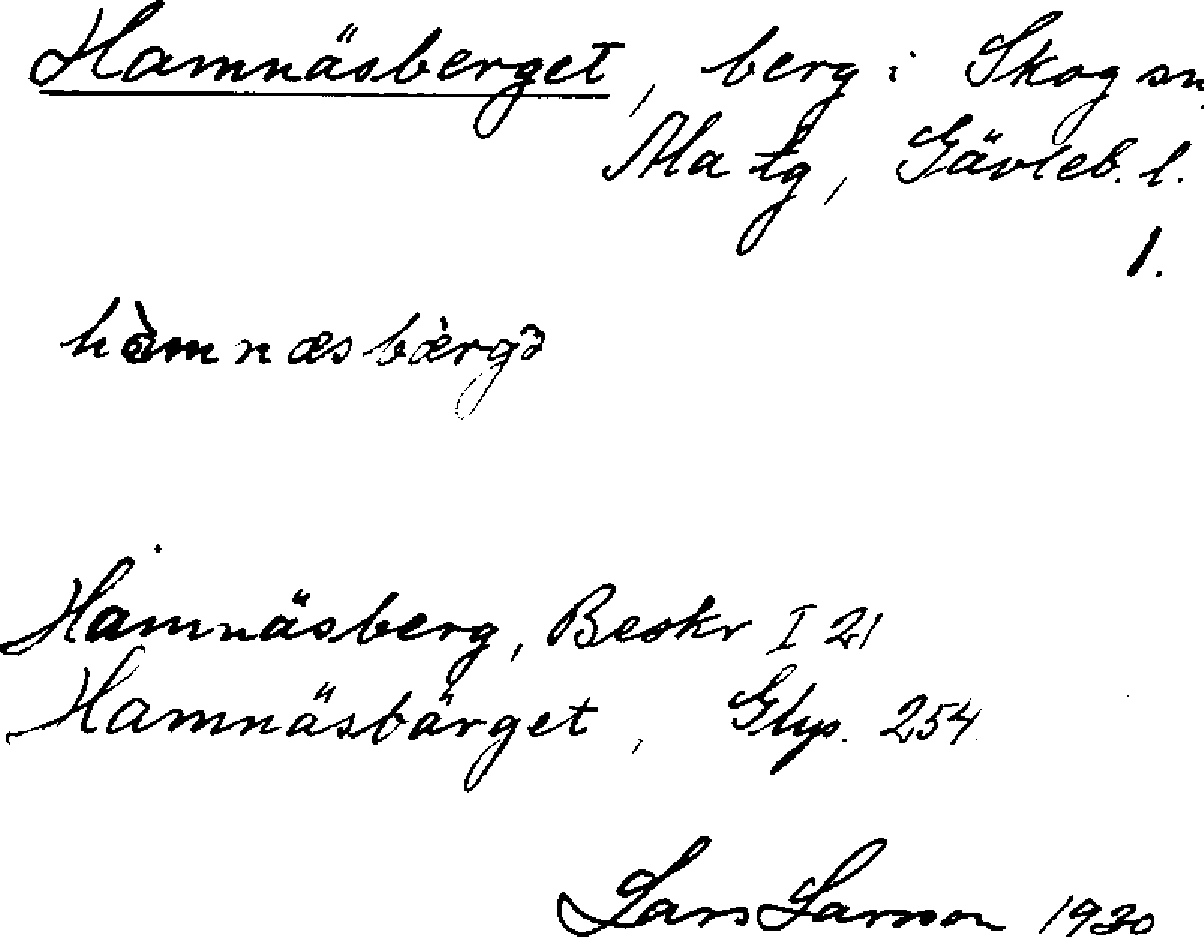 Hamnäsberget, berg i Skog sn,
Ala tg, Gävleb. l.
1.
hàmnæsbæ̀rgə
Hamnäsberg, Beskr I 21
Hamnäsbärget, Glys. 254
Lars Larsson 1930